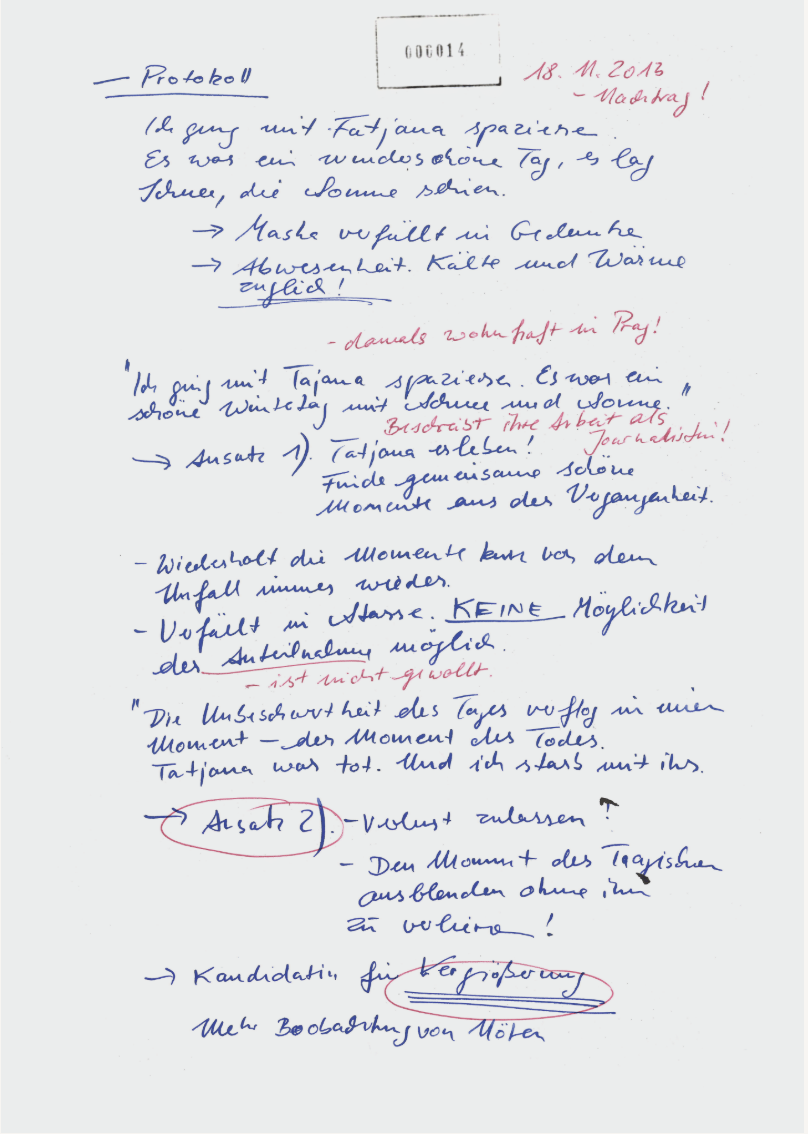 006014
— Protokoll
18. 11. 2013
– Nachtrag!
Ich ging mit Tatjana spazieren.
Es war ein wunderschöner Tag, es lag
Schnee, die Sonne schien.
→ Maske verfällt in Gedanken
→ Abwesenheit. Kälte und Wärme
zuglich!
– damals wohnhaft in Prag!
"Ich ging mit Tajana spazieren. Es war ein
schöner Wintertag mit Schnee und Sonne."
Beschreibt ihre Arbeit als
Journalistin!
→ Ansatz 1). Tatjana erleben!
Finde gemeinsame schöne
Momente aus der Vergangenheit.
– Wiederholt die Momente kurz vor dem
Unfall immer wieder.
– Verfällt in Starre. KEINE Möglichkeit
der Anteilnahme möglich.
– ist nicht gewollt.
"Die Unbeschwertheit des Tages verflog in einem
Moment – der Moment des Todes.
Tatjana war tot. Und ich starb mit ihr.
→ Ansatz 2). – Verlust zulassen!
– Den Moment des Tragischen
ausblenden ohne ihn
zu verlieren!
→ Kandidatin für Vergrößerung
Mehr Beobachtung von Nöten